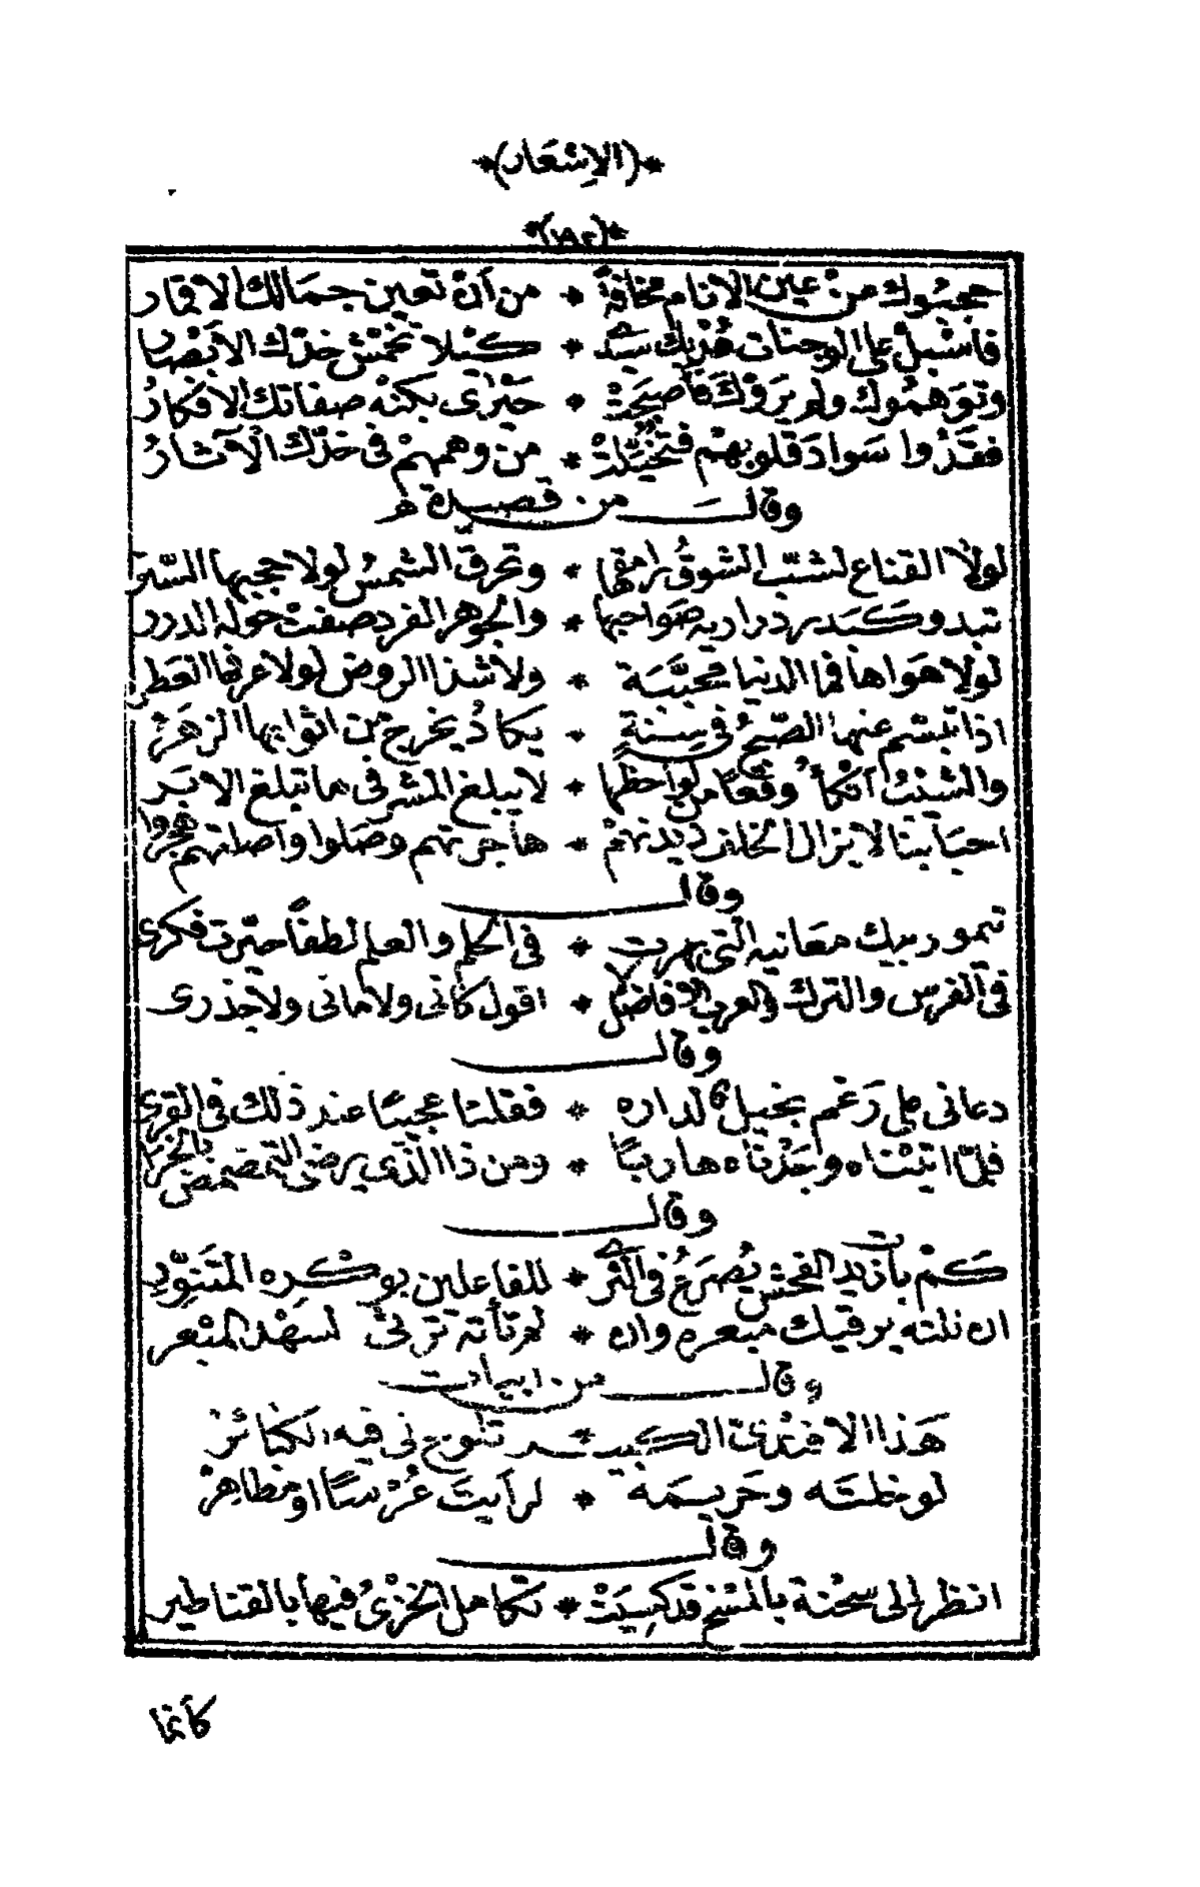 *(الاِشعار)*
*(١٩٢)*
حجبوك من عين الانام مخافةً * من أن تعين جمالك الاقمار
فاسبل على الوجنات هُدبك سيدى * كيلا تخمش خدّك الابصار
وتوهموك ولم يروك فأصبحت * حيرى بكنه صفاتك الافكارُ
فغدوا سواد قلوبهم فتخيلت * من وهمهم فى خدّك الآثارُ
وقال من قصيدة
لولا القناع لشبّ الشوقُ رامقها * وتحرق الشمسُ لولا حجبها الستر
تبدو كبدر دراريه صواحبها * والجوهر الفرد صفت حوله الدرر
لولا هواها فما الدنيا محببة * ولا شذا الروض لولا عرفها العطر
اذا تبسم عنها الصبحُ فى سنة * يكادُ يخرج من اثوابها الزهرُ
والشيبُ أنكأ وقعًا من لواحظها * لا يبلغ المشرفى ما تبلغ الابر
احبابنا لا يزال الخلف ديدنهم * هاجرتهم وصلوا واصلتهم هجروا
وقال
تيمور بيك معانيه التى بهرت * فى الحلم والعلم لطفًا حيّرت فكرى
فى الفرس والترك والعرب الافاضل لا * اقول كانى ولا مانى ولا جذرى
وقال
دعانى على رغم بخيل لداره * فقلنا عجيبًا عند ذلك فى القرى
فلمّا اتيناه وجدناه هاربًا * ومن ذا الذى يرضى التمضمض بالخرا
وقال
كم بات زيد الفحش يُصرعُ فى الثرى * للفاعلين بوكره المتنوّر
ان نلته يرقيك مبعره وان * لم تأته ترنى لسهد المبعر
وقال من ابيات
هذا الافندى الكبيـ * ـر تلوح لى فيه الكبائر
لو خلته وحريمه * لرأيت عُرسًا او مظاهر
وقال
انظر الى سحنة بالمسخ قد كسيت * تكامل الخزىُ فيها بالقناطير
كأنما